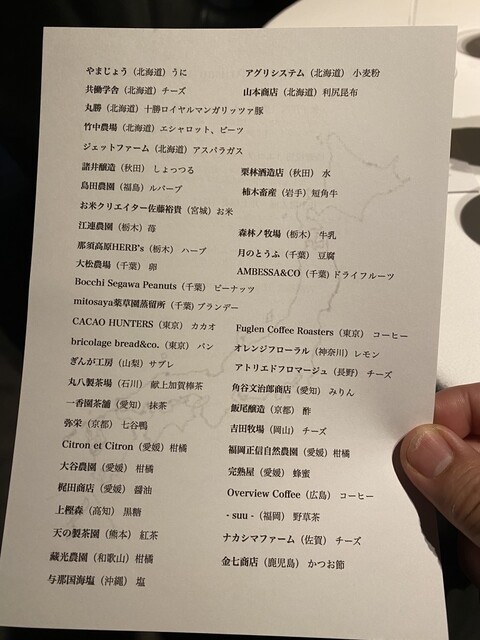 やまじょう（北海道）うに　アグリシステム（北海道）小麦粉
共働学舎（北海道）チーズ　山本商店（北海道）利尻昆布
丸勝（北海道）十勝ロイヤルマンガリッツァ豚
竹中農場（北海道）エシャロット、ビーツ
ジェットファーム（北海道）アスパラガス
諸井醸造（秋田）しょっつる　栗林酒造店（秋田）水
島田農園（福島）ルバーブ　柿木畜産（岩手）短角牛
お米クリエイター佐藤裕貴（宮城）お米
江連農園（栃木）苺　森林ノ牧場（栃木）牛乳
那須高原HERB's（栃木）ハーブ　月のとうふ（千葉）豆腐
大松農場（千葉）卵　AMBESSA&CO（千葉）ドライフルーツ
Bocchi Segawa Peanuts（千葉）ピーナッツ
mitosaya薬草園蒸留所（千葉）ブランデー
CACAO HUNTERS（東京）カカオ　Fuglen Coffee Roasters（東京）コーヒー
bricolage bread&co.（東京）パン　オレンジフローラル（神奈川）レモン
ぎんが工房（山梨）サブレ　アトリエドフロマージュ（長野）チーズ
丸八製茶場（石川）献上加賀棒茶　角谷文治郎商店（愛知）みりん
一香園茶舗（愛知）抹茶　飯尾醸造（京都）酢
弥栄（京都）七谷鴨　吉田牧場（岡山）チーズ
Citron et Citron（愛媛）柑橘　福岡正信自然農園（愛媛）柑橘
大谷農園（愛媛）柑橘　完熟屋（愛媛）蜂蜜
梶田商店（愛媛）醤油　Overview Coffee（広島）コーヒー
上樫森（高知）黒糖　- suu -（福岡）野草茶
天の製茶園（熊本）紅茶　ナカシマファーム（佐賀）チーズ
蔵光農園（和歌山）柑橘　金七商店（鹿児島）かつお節
与那国海塩（沖縄）塩